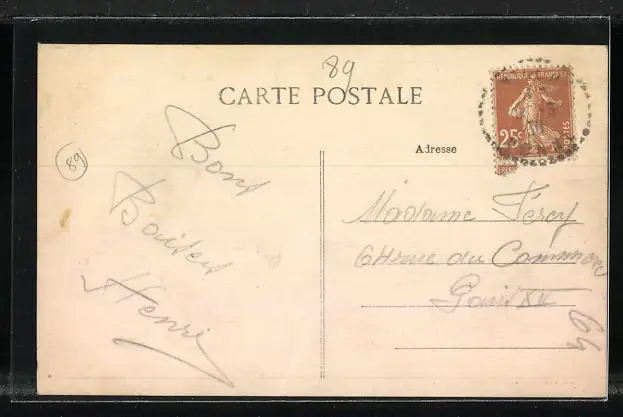 89
CARTE POSTALE
REPUBLIQUE FRANÇAISE
25c
POSTES
89
Adresse
Bons
Baisers
Henri
Madame Fercy
64 rue du Commerce
Paris XV
64